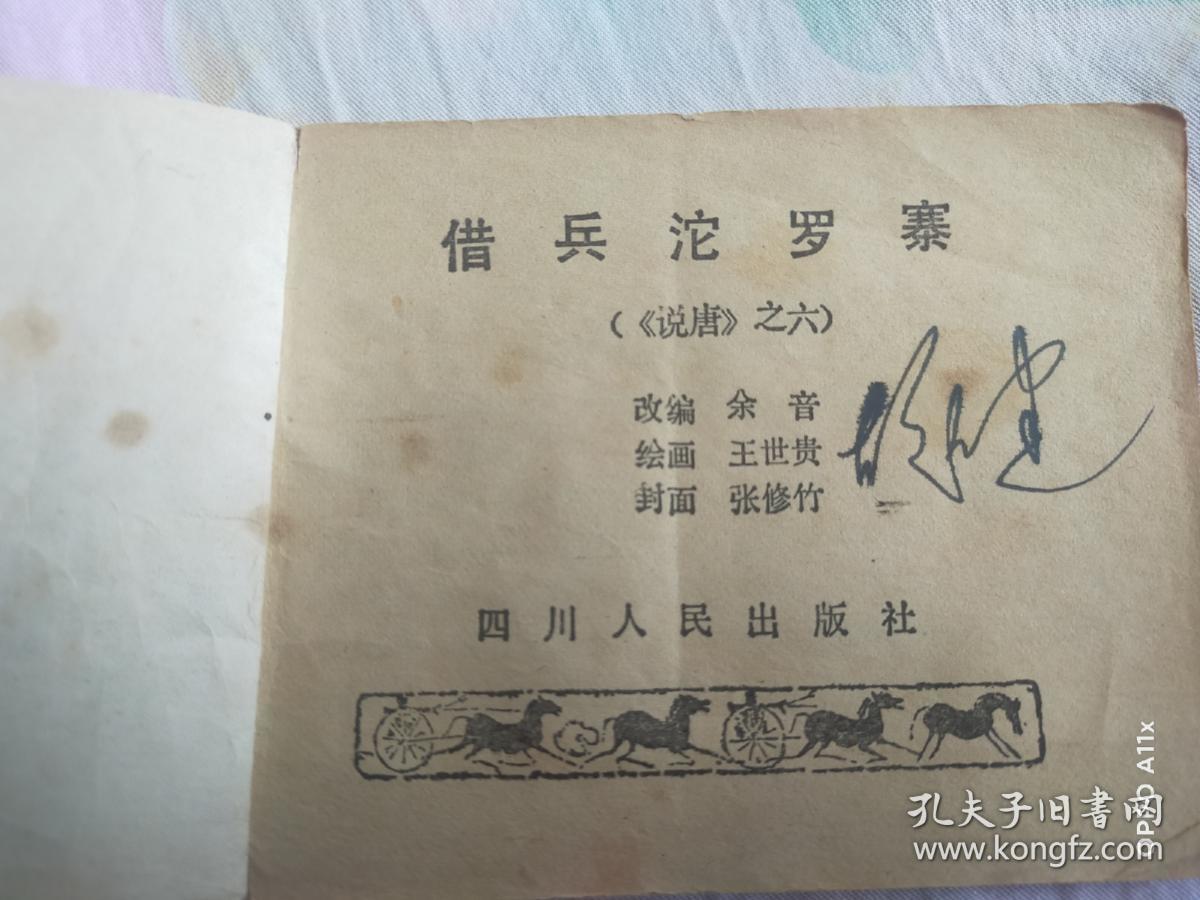 借兵沱罗寨
(《说唐》之六)
改编 余音
绘画 王世贵
封面 张修竹
四川人民出版社
孔夫子旧书网
www.kongfz.com
OPPO A11x